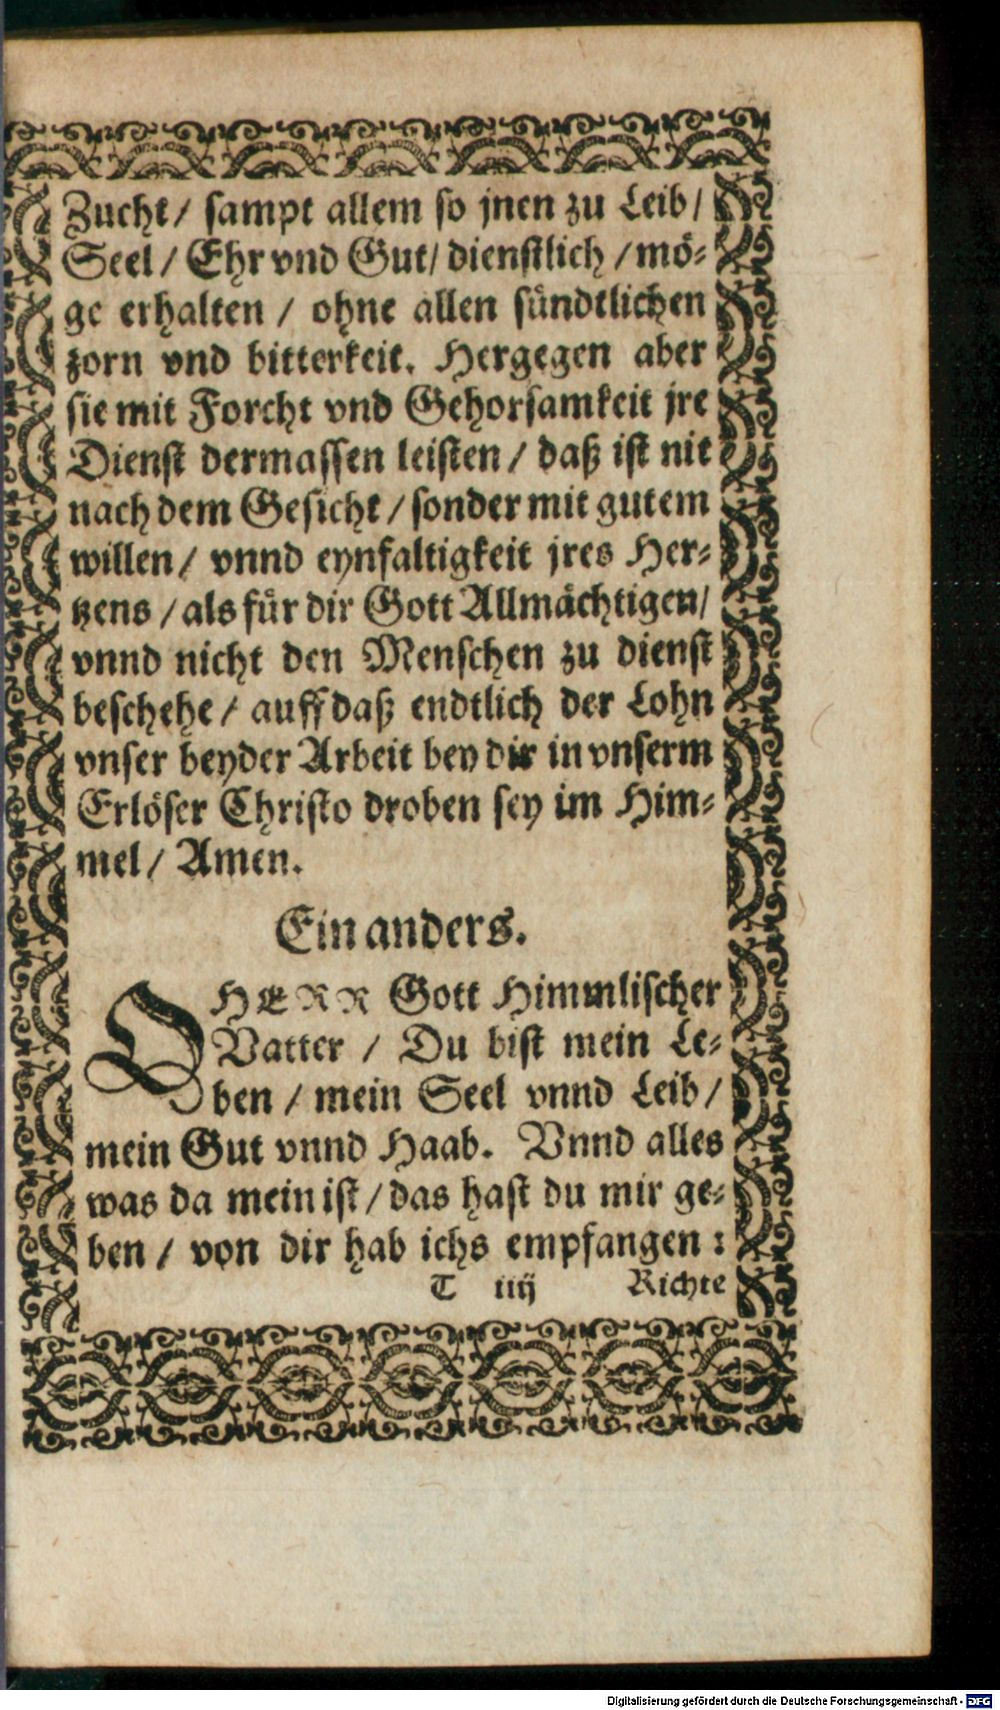 Zucht / sampt allem so jnen zu Leib /
Seel / Ehr vnd Gut / dienstlich / mö-
ge erhalten / ohne allen sündtlichen
zorn vnd bitterkeit. Hergegen aber
sie mit Forcht vnd Gehorsamkeit jre
Dienst dermassen leisten / daß ist nit
nach dem Gesicht / sonder mit gutem
willen / vnnd eynfaltigkeit jres Her-
tzens / als für dir Gott Allmächtigen /
vnnd nicht den Menschen zu dienst
beschehe / auff daß endtlich der Lohn
vnser beyder Arbeit bey dir in vnserm
Erlöser Christo droben sey im Him-
mel / Amen.
Ein anders.
O HERR Gott Himmlischer
Vatter / Du bist mein Le-
ben / mein Seel vnnd Leib /
mein Gut vnnd Haab. Vnnd alles
was da mein ist / das hast du mir ge-
ben / von dir hab ichs empfangen :
T iiij Richte
Digitalisierung gefördert durch die Deutsche Forschungsgemeinschaft - DFG